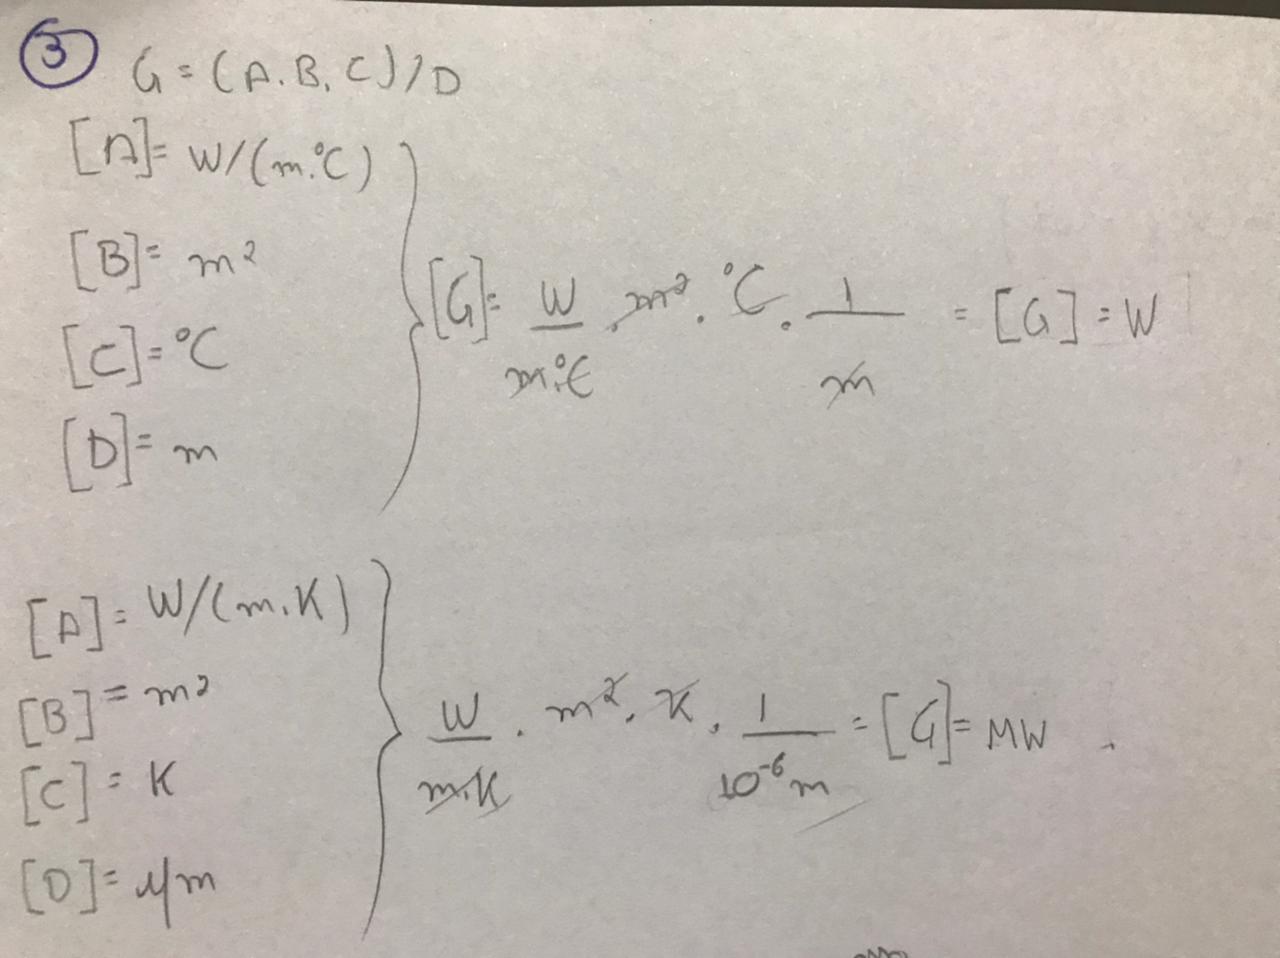 3
G = (A.B.C)/D
[A] = W/(m.°C)
[B] = m²
[C] = °C
[D] = m
[G] = W/m.°C . m² . °C . 1/m = [G] = W
[A] = W/(m.K)
[B] = m²
[C] = K
[D] = μm
W/m.K . m² . K . 1/10⁻⁶m = [G] = MW .